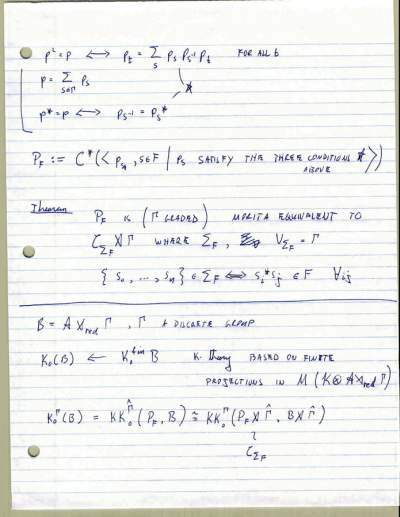 p² = p ⟺ p_t = Σ_s p_s p_{s⁻¹} p_t FOR ALL t
p = Σ_{s∈Γ} p_s
*
p* = p ⟺ p_{s⁻¹} = p_s*
P_F := C*(⟨ p_s, s∈F | p_s SATISFY THE THREE CONDITIONS * ⟩)
ABOVE
Theorem P_F IS (Γ GRADED) MORITA EQUIVALENT TO
C_{Σ_F} ⋊ Γ WHERE Σ_F, V_{Σ_F} = Γ
{ s_0, ..., s_n } ∈ Σ_F ⟺ s_i⁻¹ s_j ∈ F ∀ij
B = A ⋊_red Γ, Γ A DISCRETE GROUP
K_0(B) ← K_0^{fin} B K-theory BASED ON FINITE
PROJECTIONS IN M(K⊗A⋊_red Γ)
K_0^Γ(B) = KK_0^Γ̂(P_F, B) ≅ KK_0^Γ(P_F ⋊ Γ̂, B ⋊ Γ̂)
≀
C_{Σ_F}